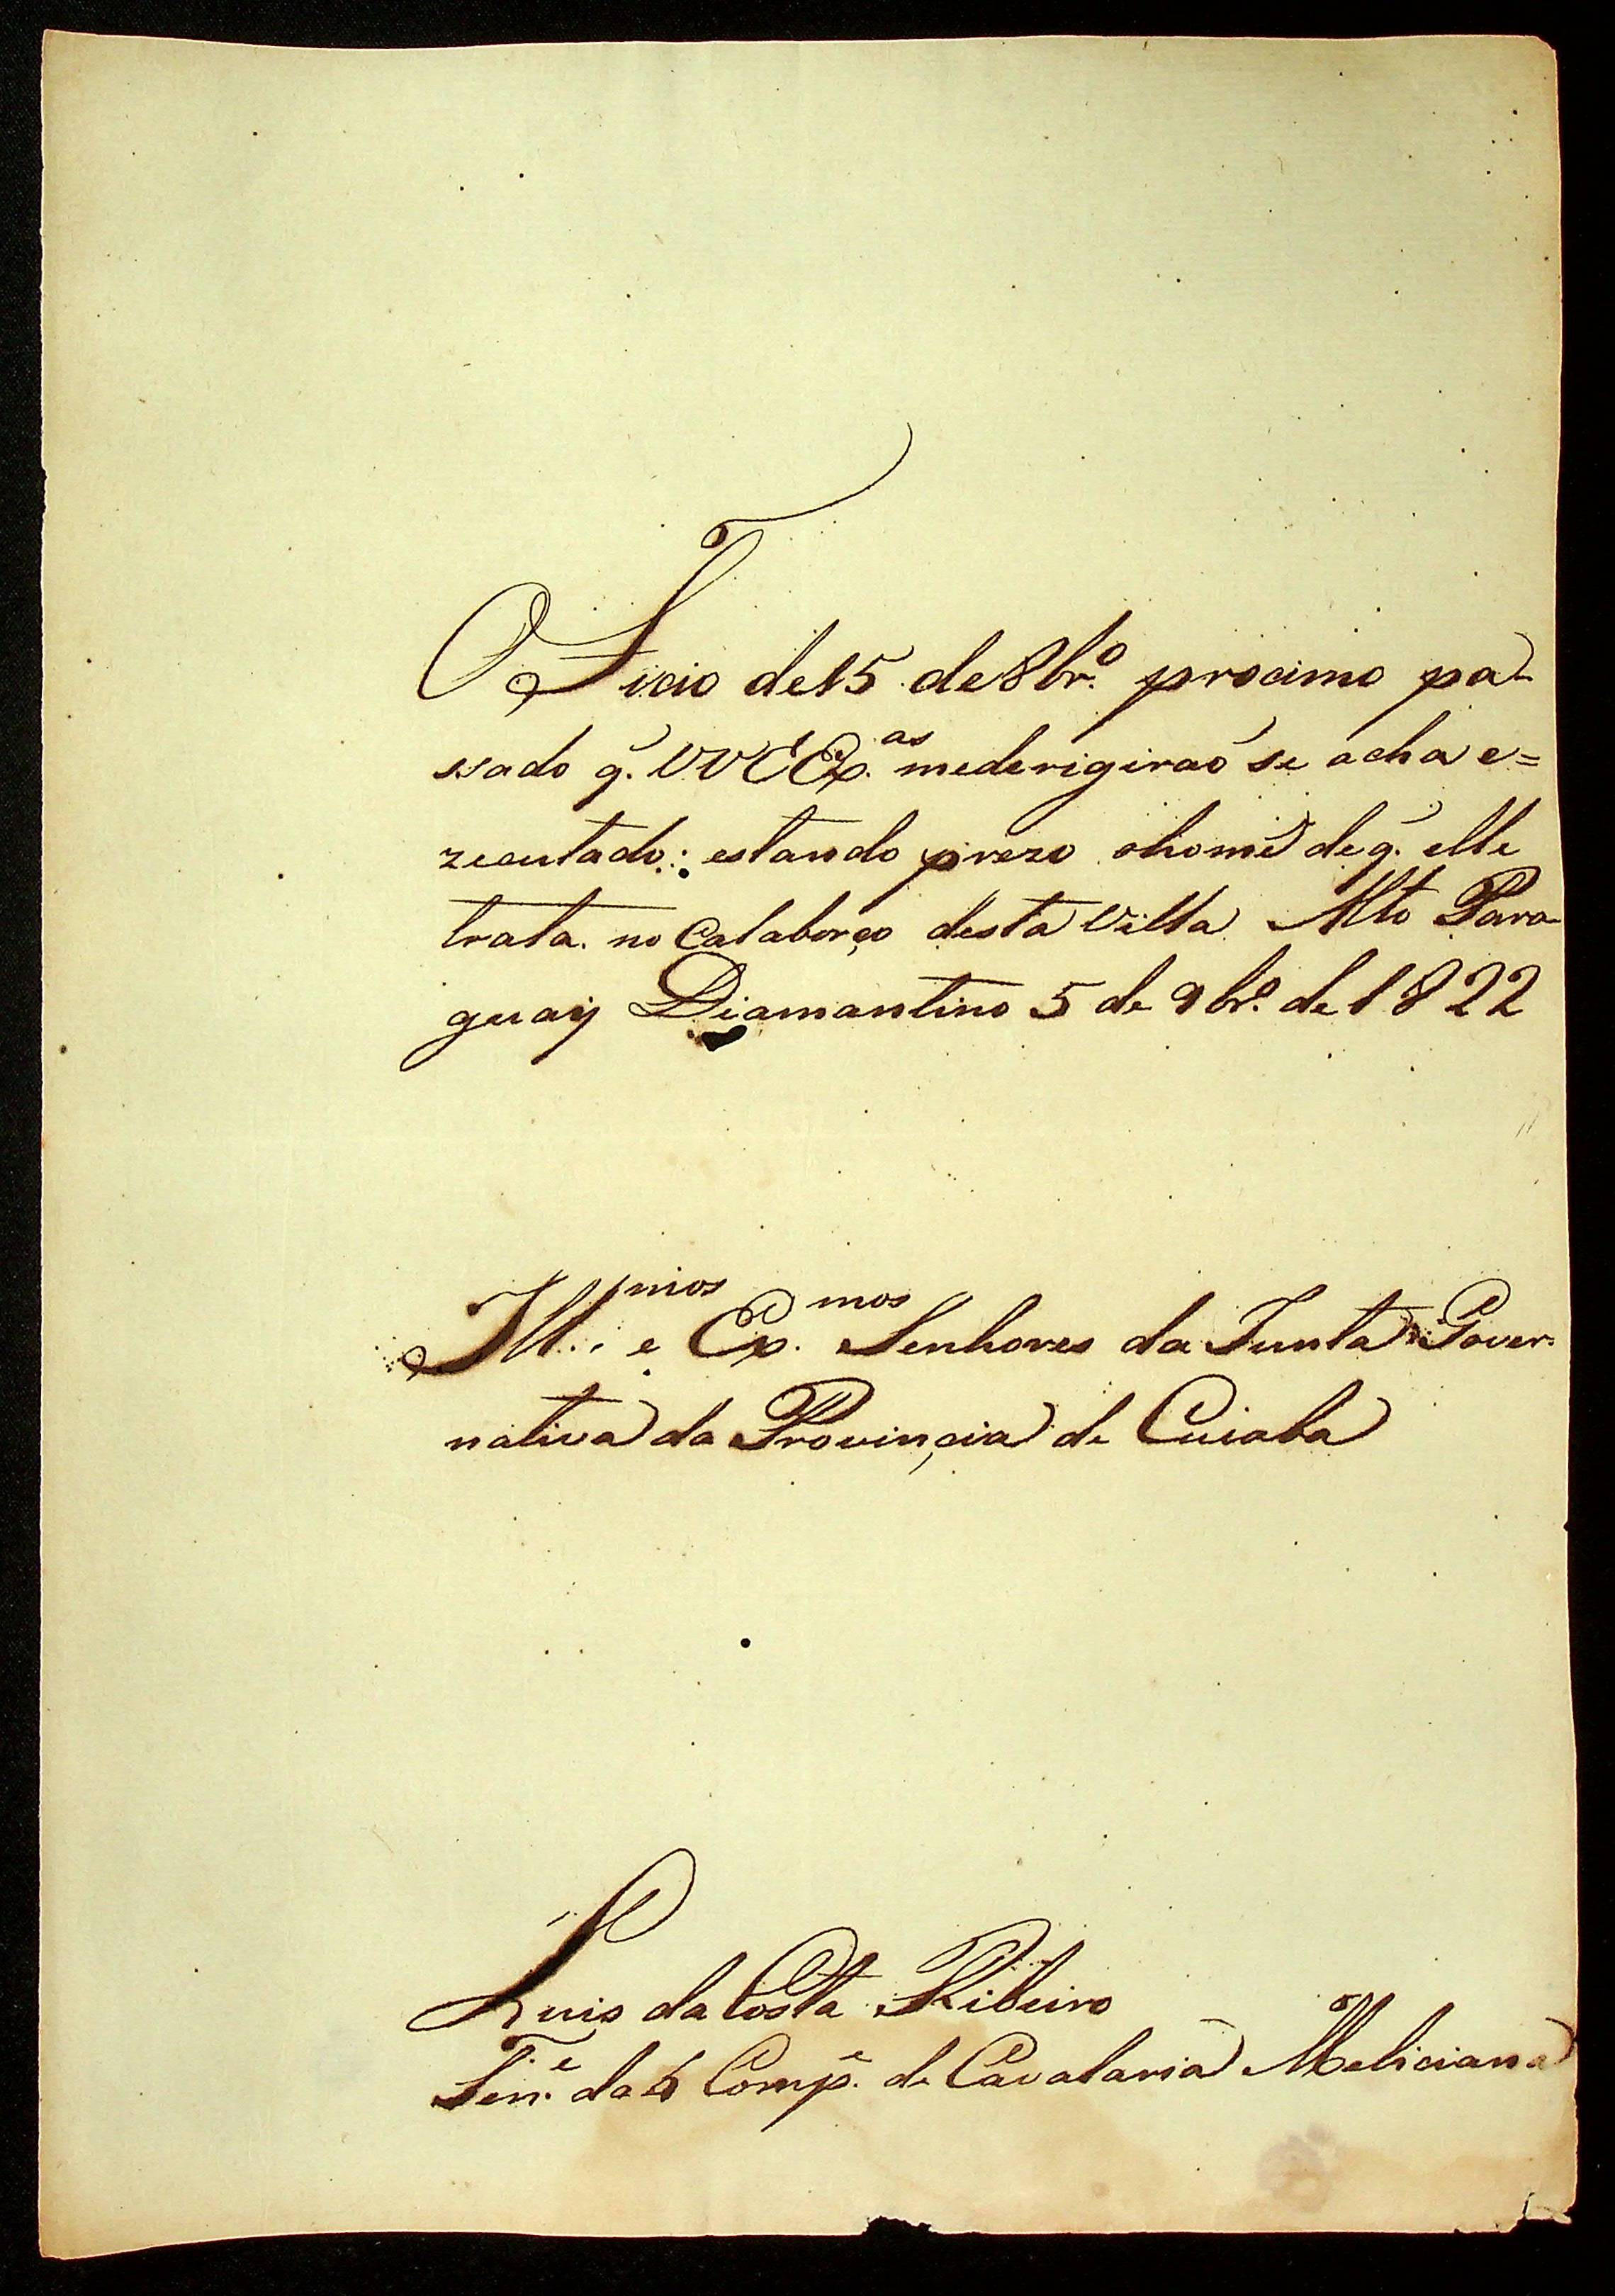 OFicio de 15 de 8br.º procimo pa-
ssado q.' VVEEx.as mederigiraõ se acha e=
zecutado: estando prezo ohomẽ deq.' elle
trata. no Calaborço desta Villa Alto Para-
guay Diamantino 5 de 9br.º de 1822
Ill.mos e Ex.mos Senhores da Junta Gover-
nativa da Provinçia de Cuiaba
Luis da Costa Ribeiro
Ten.e da 6 Comp.e de Cavalaria Meliciana